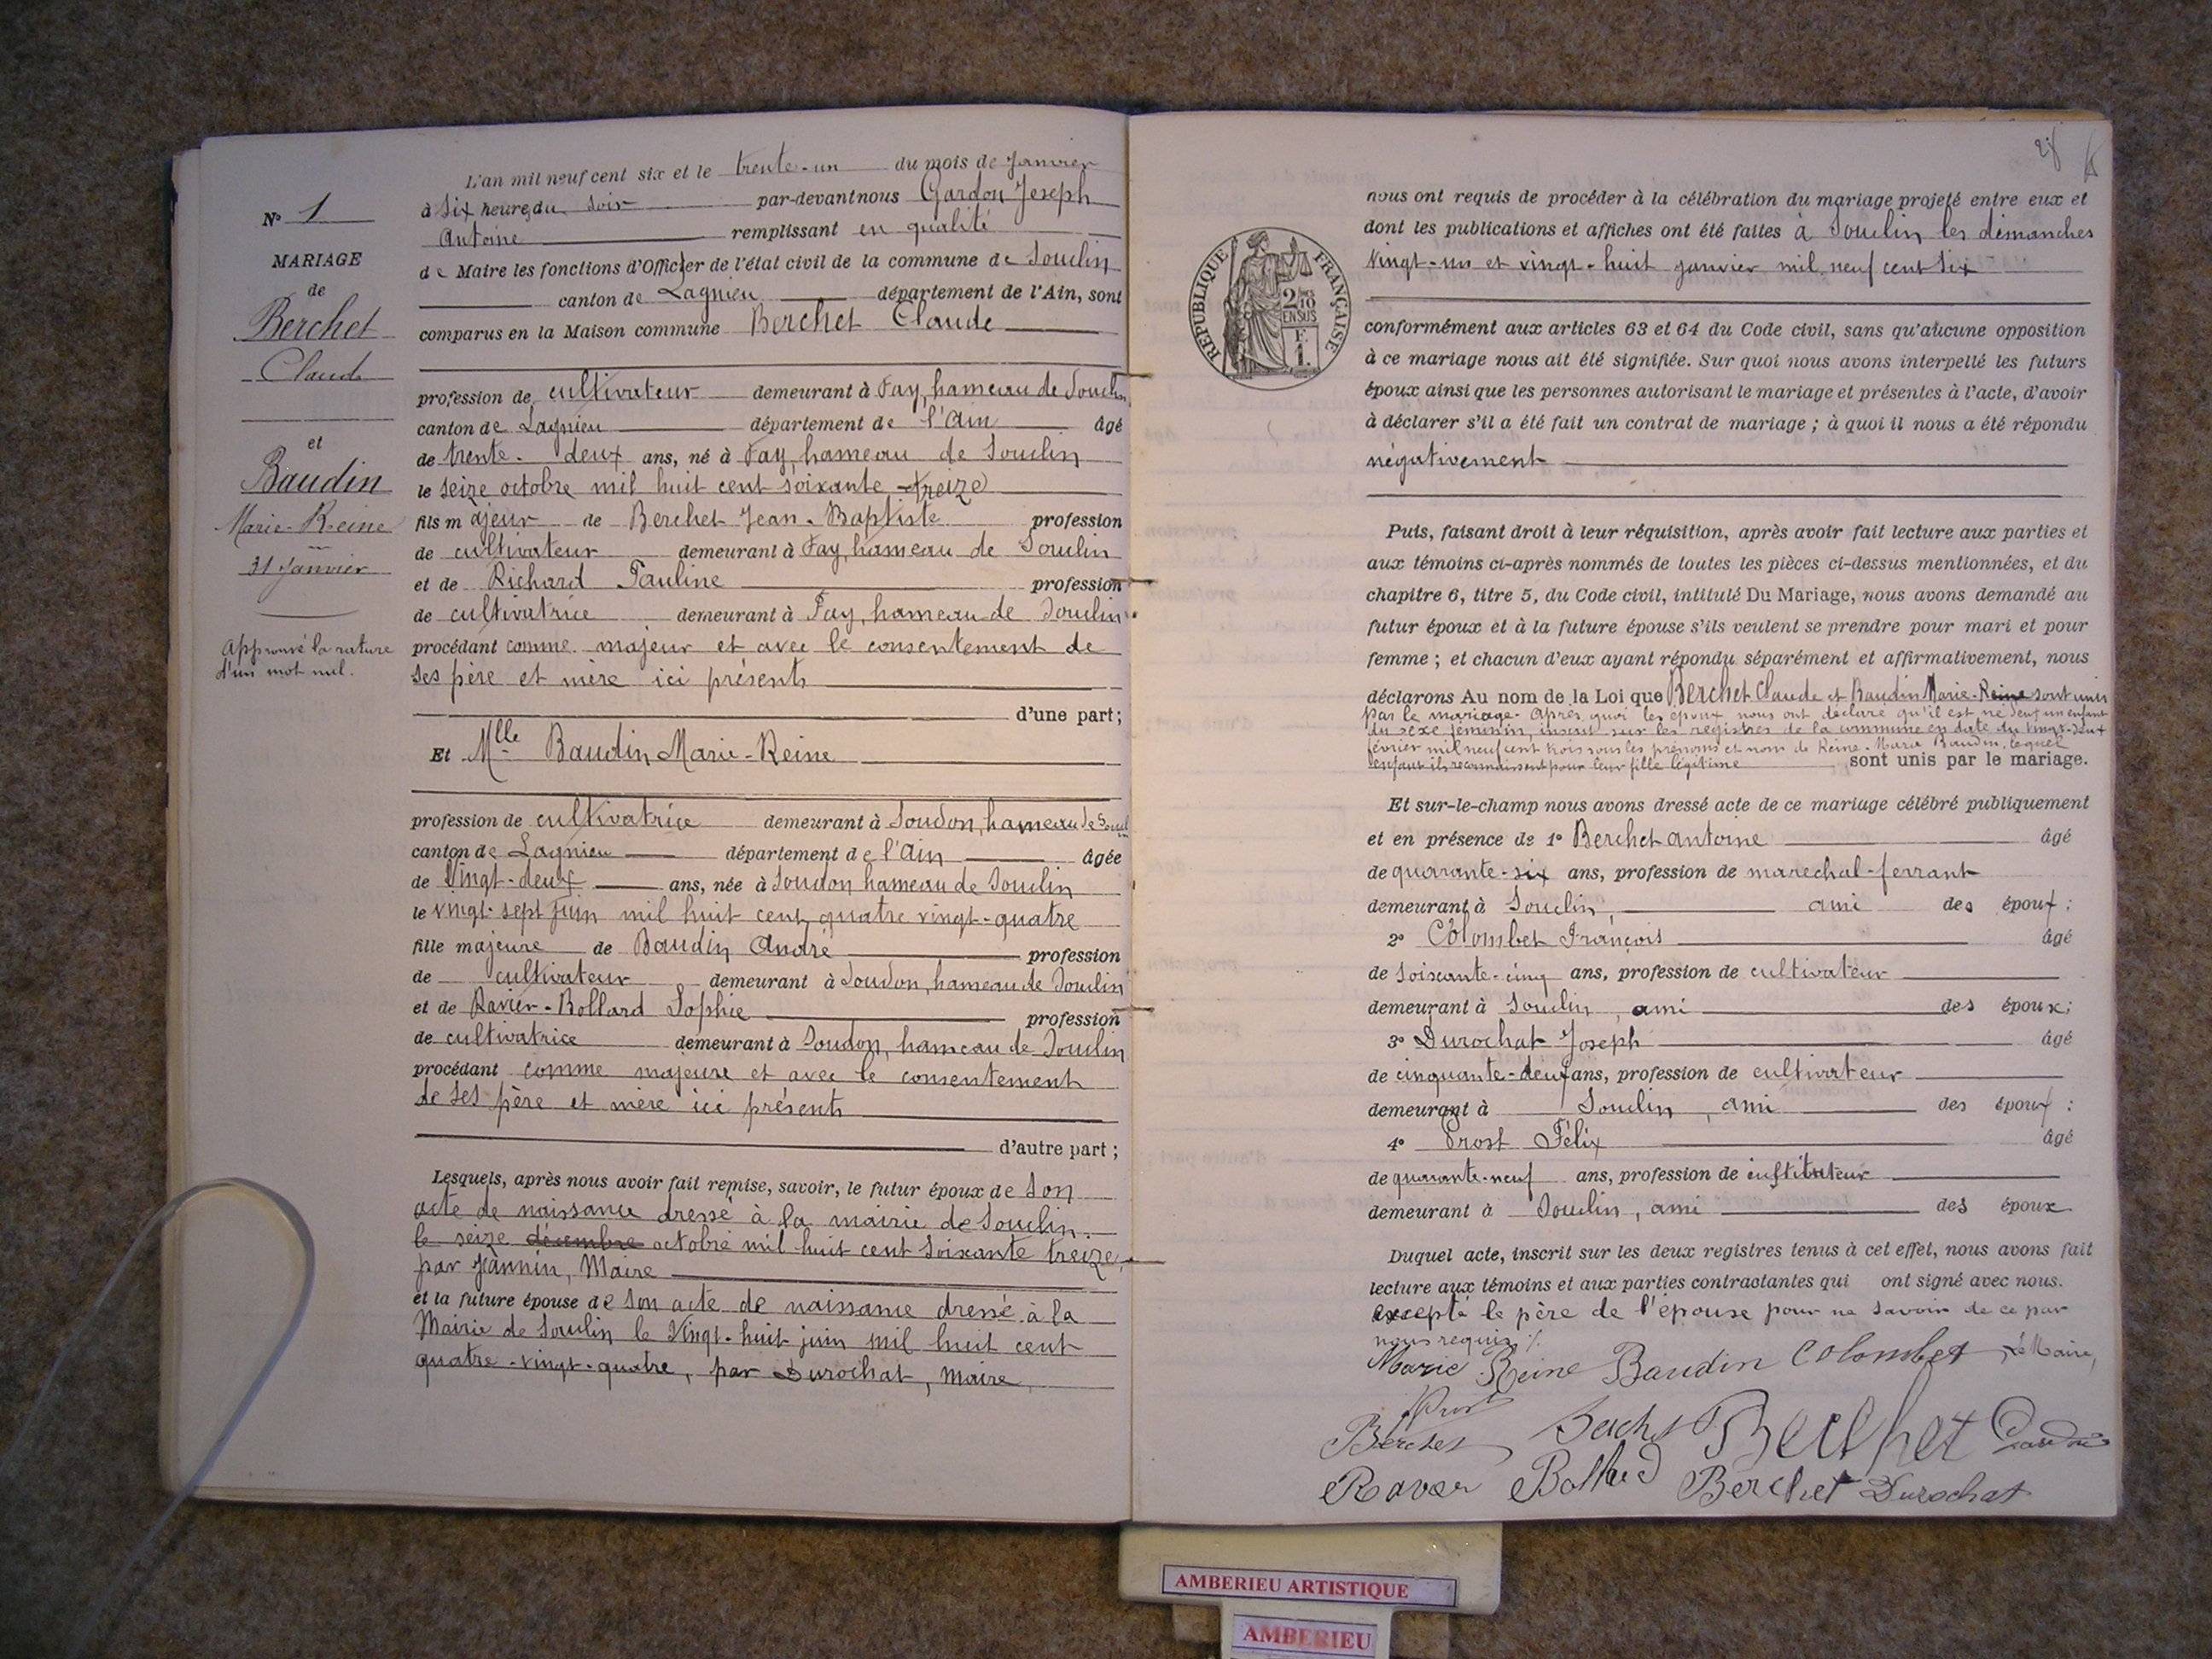 N° 1
MARIAGE
de
Berchet
Claude
et
Baudin
Marie-Reine
31 Janvier
Approuvé la rature
d'un mot nul.
L'an mil neuf cent six et le trente-un du mois de Janvier
à six heures du soir par-devant nous Gardon Joseph
Antoine remplissant en qualité
de Maire les fonctions d'Officier de l'état civil de la commune de Souclin
canton de Lagnieu département de l'Ain, sont
comparus en la Maison commune Berchet Claude
profession de cultivateur demeurant à Fay, hameau de Souclin
canton de Lagnieu département de l'Ain âgé
de trente-deux ans, né à Fay, hameau de Souclin
le seize octobre mil huit cent soixante-treize
fils majeur de Berchet Jean-Baptiste profession
de cultivateur demeurant à Fay, hameau de Souclin
et de Richard Pauline profession
de cultivatrice demeurant à Fay, hameau de Souclin
procédant comme majeur et avec le consentement de
ses père et mère ici présents
d'une part;
Et Mlle Baudin Marie-Reine
profession de cultivatrice demeurant à Soudon, hameau de Soucl
canton de Lagnieu département de l'Ain âgée
de vingt-deux ans, née à Soudon hameau de Souclin
le vingt-sept juin mil huit cent quatre vingt-quatre
fille majeure de Baudin André profession
de cultivateur demeurant à Soudon, hameau de Souclin
et de Ravier-Bollard Sophie profession
de cultivatrice demeurant à Soudon, hameau de Souclin
procédant comme majeure et avec le consentement
de ses père et mère ici présents
d'autre part;
Lesquels, après nous avoir fait remise, savoir, le futur époux de son
acte de naissance dressé à la mairie de Souclin
le seize décembre octobre mil huit cent soixante treize,
par Jeannin, Maire
et la future épouse de son acte de naissance dressé à la
Mairie de Souclin le vingt-huit juin mil huit cent
quatre-vingt-quatre, par Durochat, Maire,
28
RÉPUBLIQUE FRANÇAISE
2 10
EN SUS
F.
1.
nous ont requis de procéder à la célébration du mariage projeté entre eux et
dont les publications et affiches ont été faites à Souclin les dimanches
vingt-un et vingt-huit janvier mil neuf cent six
conformément aux articles 63 et 64 du Code civil, sans qu'aucune opposition
à ce mariage nous ait été signifiée. Sur quoi nous avons interpellé les futurs
époux ainsi que les personnes autorisant le mariage et présentes à l'acte, d'avoir
à déclarer s'il a été fait un contrat de mariage; à quoi il nous a été répondu
négativement
Puis, faisant droit à leur réquisition, après avoir fait lecture aux parties et
aux témoins ci-après nommés de toutes les pièces ci-dessus mentionnées, et du
chapitre 6, titre 5, du Code civil, intitulé Du Mariage, nous avons demandé au
futur époux et à la future épouse s'ils veulent se prendre pour mari et pour
femme; et chacun d'eux ayant répondu séparément et affirmativement, nous
déclarons Au nom de la Loi que Berchet Claude et Baudin Marie-Reine sont unis
par le mariage. Après quoi les époux nous ont déclaré qu'il est né d'eux un enfant
du sexe féminin, inscrit sur les registres de la commune en date du vingt-deux
février mil neuf cent trois sous les prénoms et nom de Reine-Maria Baudin, lequel
enfant ils reconnaissent pour leur fille légitime sont unis par le mariage.
Et sur-le-champ nous avons dressé acte de ce mariage célébré publiquement
et en présence de 1° Berchet Antoine âgé
de quarante-six ans, profession de marechal-ferrant
demeurant à Souclin, ami des époux;
2° Colombet François âgé
de soixante-cinq ans, profession de cultivateur
demeurant à Souclin, ami des époux;
3° Durochat Joseph âgé
de cinquante-deux ans, profession de cultivateur
demeurant à Souclin, ami des époux;
4° Prost Félix âgé
de quarante-neuf ans, profession de instituteur
demeurant à Souclin, ami des époux
Duquel acte, inscrit sur les deux registres tenus à cet effet, nous avons fait
lecture aux témoins et aux parties contractantes qui ont signé avec nous.
excepté le père de l'épouse pour ne savoir de ce par
nous requis %.
Marie Reine Baudin Colombet Le Maire,
Prost
Berchet Berchet Gardon
Ravier Bollard Berchet Durochat
AMBERIEU ARTISTIQUE
AMBERIEU